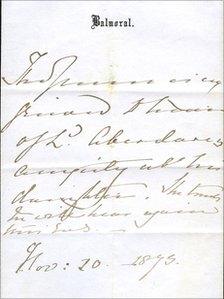 Balmoral.
The Queen is very
grieved to hear
of Ld. Aberdare's
anxiety abt. his
daughter. She trusts
to hear again
Nov: 20. 1873.